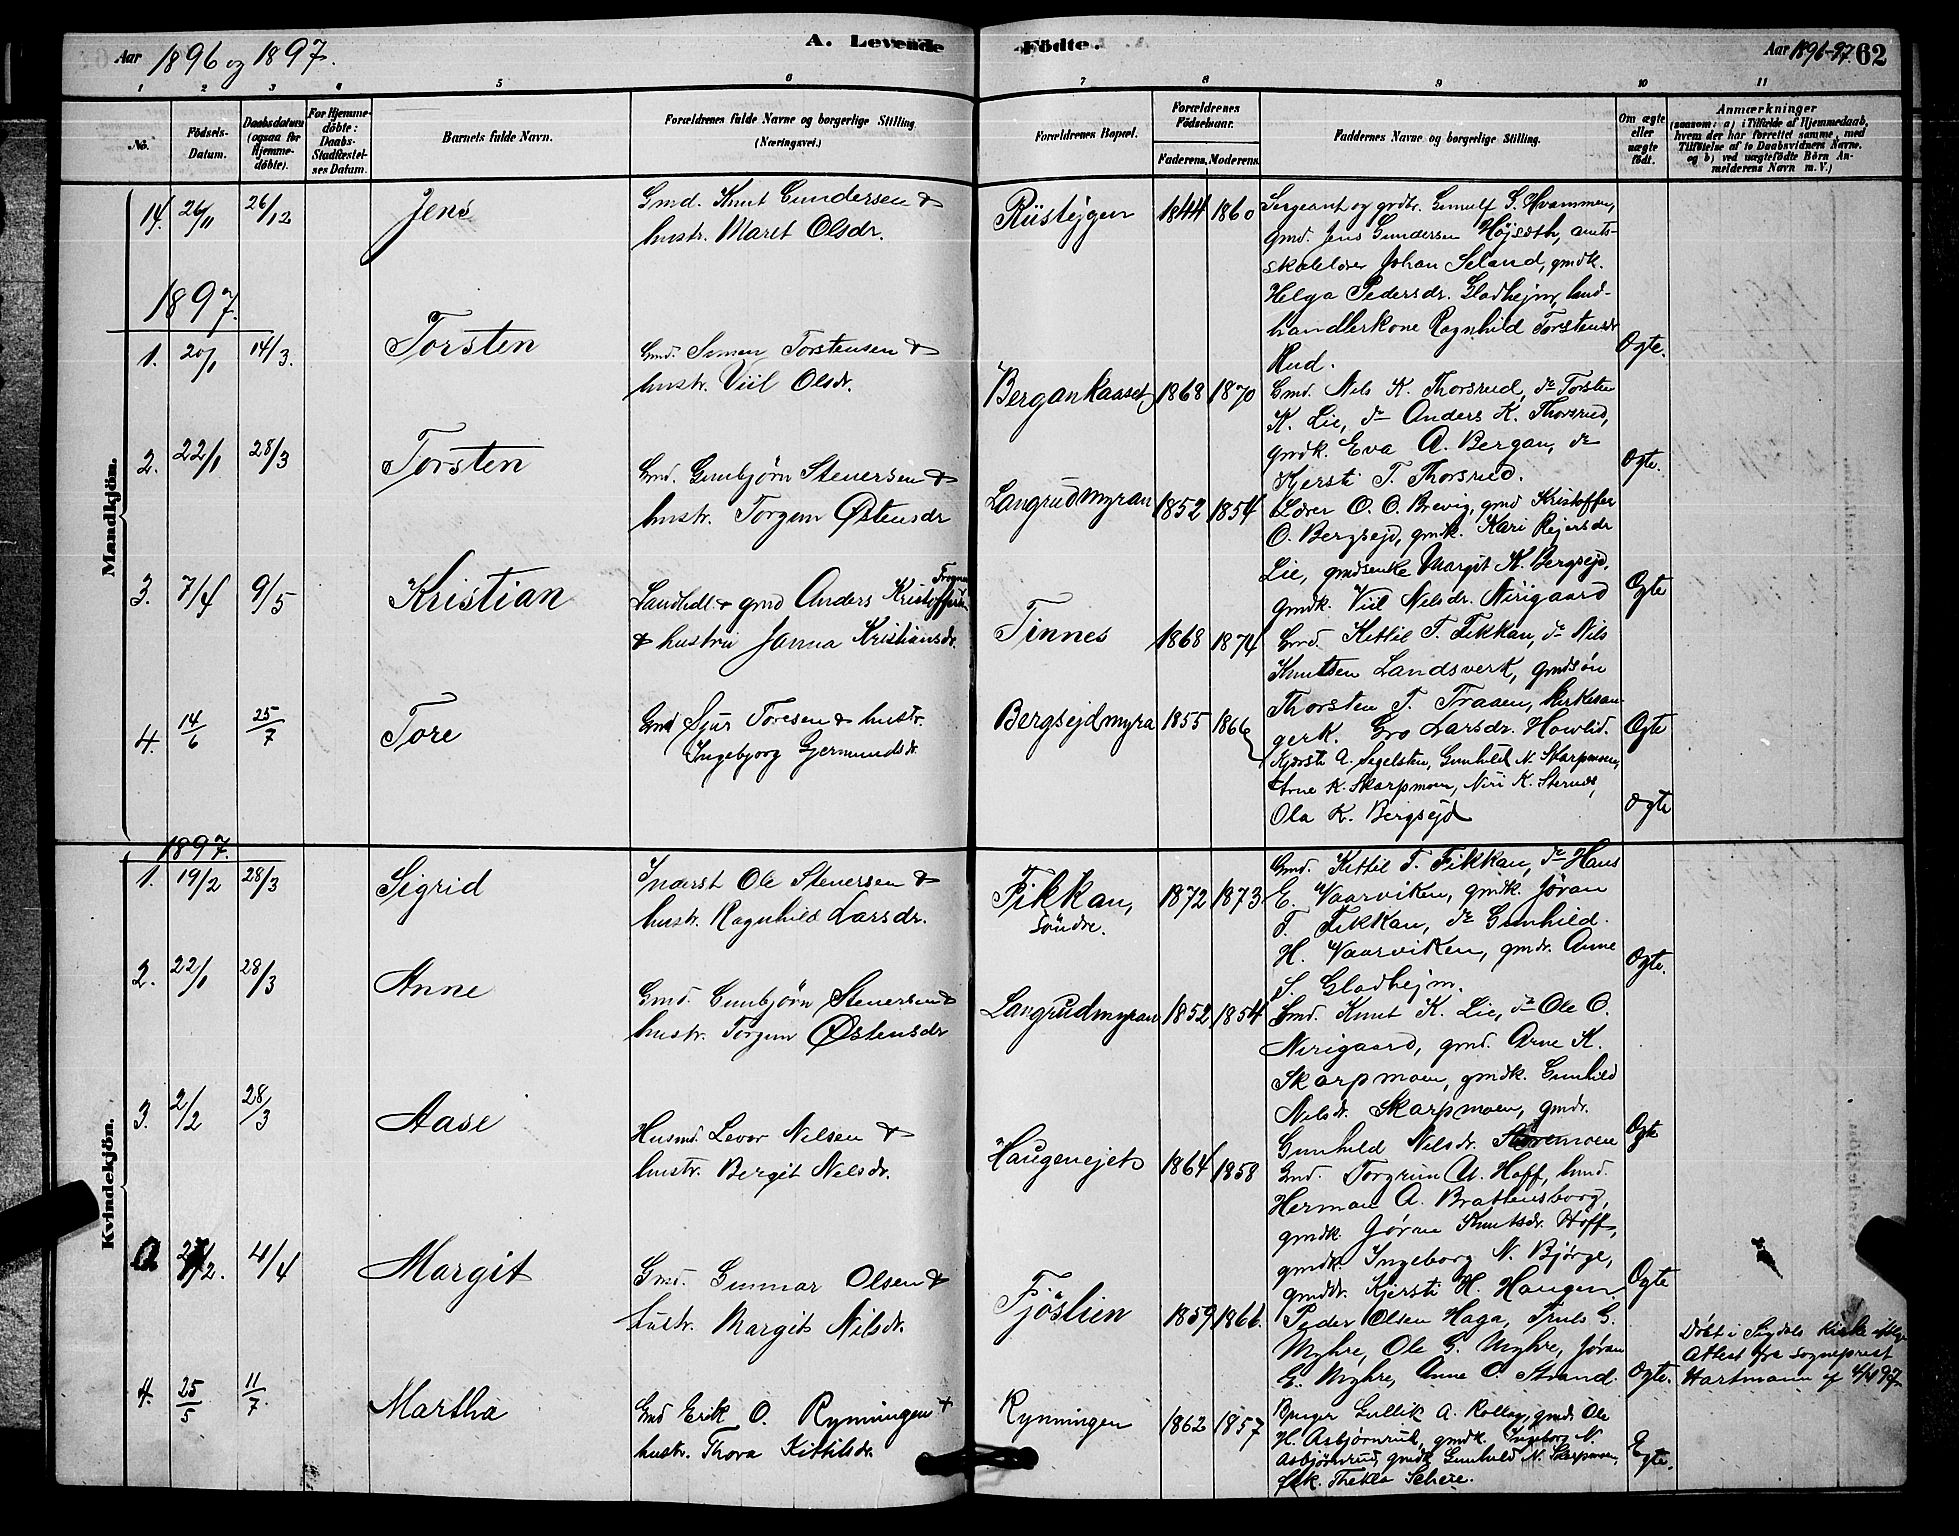 Aar 1896 og 1897.
A. Levende
Födte.
Aar 1896-97. 62
1 2 3 4 5 6
7 8 9 10 11
No.
Födsels-Datum.
Daabsdatum (ogsaa for Hjemme-döbte).
For Hjemme-döbte: Daabs-Stadfæstel-ses Datum.
Barnets fulde Navn.
Forældrenes fulde Navne og borgerlige Stilling.
(Næringsvei.)
Forældrenes Bopæl.
Forældrenes Födselsaar.
Faderens. Moderens.
Faddernes Navne og borgerlige Stilling.
Om ægte eller uægte födt.
Anmærkninger
(saasom: a) i Tilfælde af Hjemmedaab,
hvem der har forrettet samme, med
Tilföielse af to Daabsvidners Navne,
og b) ved uægtefödte Börn An-
melderens Navn m. V.)
Mandkjön.
14. 26/11 26/12 Jens
Gmd. Knut Gundersen &
hustr. Maret Olsdr.
Rüstejgen 1844 1860
Sergeant og grdbr. Gunulf S. Hvammen,
gmd. Jens Gundersen Højseth, amts-
skolelærer Johan Seland, gmdk.
Helga Pedersdr. Gladhejm, land-
handlerkone Ragnhild Torstensdr
Rud.
Ogte.
1897.
1. 20/1 14/3. Torsten
Gmd. Simen Torstensen &
hustr. Viil Olsdr.
Bergankaaset 1868 1870
Gmd. Nils K. Thorsrud, do Torsten
K. Lie, do Anders K. Thorsrud,
gmdk. Eva A. Bergan, do
Kjersti T. Thorsrud.
Ogte.
2. 22/1 28/3 Torsten
Gmd. Gunbjørn Stenersen &
hustr. Torgun Østensdr
Langrudmyran 1852 1854
Lærer O. O. Brevig, gmd Kristoffer
O. Bergsejd, gmdk. Kari Rejersdr
Lie, gmdsenke Margit K. Bergsejd,
gmdk. Viil Nilsdr. Nirigaard
Ogte
3. 7/4 9/5 Kristian
Landhdl. & gmd Anders Kristoffersen
& hustru Janna Kristiansdr.
Tinnes 1868 1874
Gmd. Kittil T. Fikkan, do Nils
Knutsen Landsverk, gmdsøn
Thorsten T. Traaen, kirkesan-
gerk. Gro Larsdr. Howlid.
Ogte
4. 14/6 25/7 Tore
Gmd Sjur Toresen & hustr.
Ingebjorg Gjermundsdr.
Bergsejdmyra 1855 1866
Kjersti A. Segelsten, Gunhild N. Skarpmoen,
Arne K. Skarpmoen, Niri K. Sternes,
Ola K. Bergsejd
ogte
Kvindekjön.
1897.
1. 19/2 28/3 Sigrid
Inderst Ole Stenersen &
hustr. Ragnhild Larsdr.
Fikkan,
söndre.
1872 1873
Gmd. Kittil T. Fikkan, do Hans
E. Vaarviken, gmdk. Jøran
T. Fikkan, do Gunhild
H. Vaarviken, gmdr. Anne
S. Gladhejm.
Ogte.
2. 22/1 28/3 Anne
Gmd. Gunbjörn Stenersen &
hustr. Torgun Østensdr
Langrudmyran 1852 1854
Gmd. Knut K. Lie, do Ole O.
Nirigaard, gmd. Arne K.
Skarpmoen, gmdk. Gunhild
Nilsdr. Skarpmoen, gmdr.
Gunhild Nilsdr.
Ogte
3. 2/2 28/3 Aase
Husmd. Levor Nilsen &
hustr. Bergit Nilsdr.
Haugenejet 1864 1858
Gmd. Torgrim A. Hoff, hmd.
Herman A. Brattensborg,
gmdk. Jøran Knutsdr. Hoff,
gmdk. Ingeborg N. Bjørge,
gmddr. Kjersti H. Haugen
Ogte
4/4 Margit
Gmd. Gunnar Olsen &
hustr. Margit Nilsdr.
Fjöslien 1859 1866.
Peder Olsen Haga, Truls G.
Myhre, Ole G. Myhre, Jøran
E. Myhre, Anne O. Strand.
Ogte.
Döbt i Sigdals Kirke iflge
Attest fra sogneprest
Hartmann af 4/4 97.
4. 25/5 11/7. Martha
Gmd Erik O. Rynningen &
hustr. Thora Kittilsdr.
Rynningen 1862 1857
Gullik A. Kollag, gmd. Ole
H. Asbjørnrud, gmdk. Ingeborg N.
Asbjørnrud, gmdk Gunhild N. Skarpmoen,
Thekla Schere.
Egte.